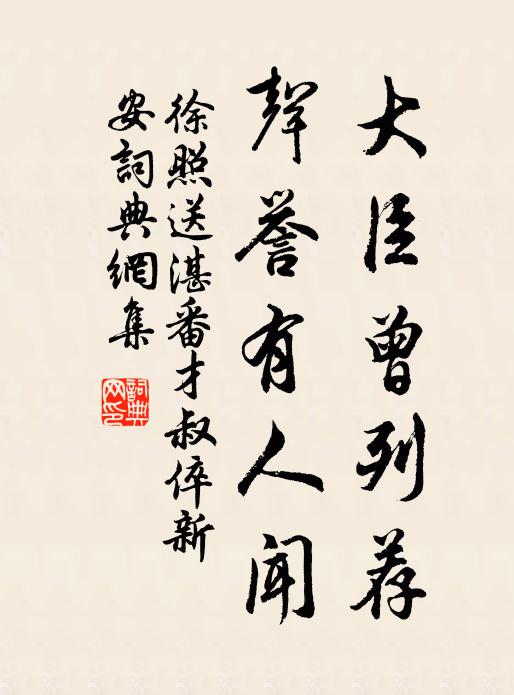 大臣曾列荐
聲誉有人闻
徐照送湛番才叔倅新
安詞典網集
詞典
网印